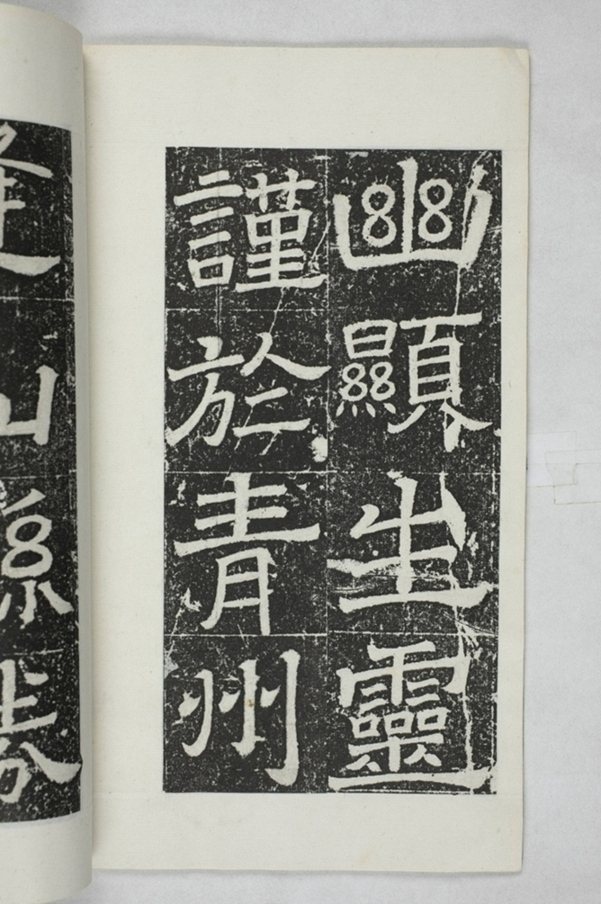 幽顯生靈
謹於青州